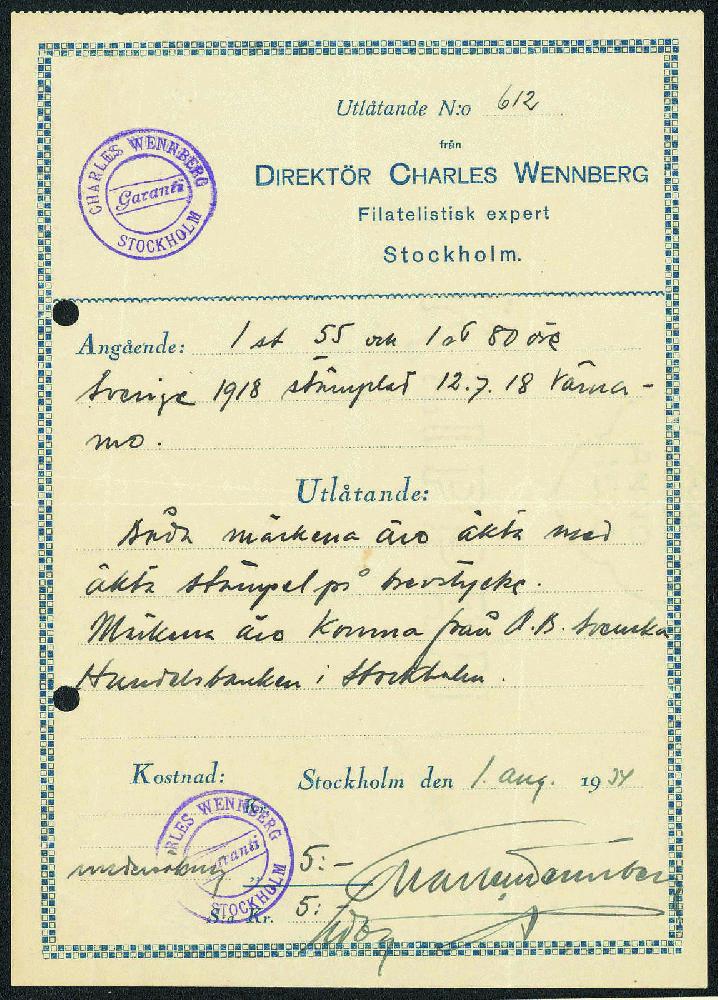 Utlåtande N:o 612
från
DIREKTÖR CHARLES WENNBERG
Filatelistisk expert
Stockholm.
CHARLES WENNBERG
Garanti
STOCKHOLM
Angående: 1 st 55 och 1 st 80 öre
Sverige 1918 stämplad 12.7.18 Värna-
mo.
Utlåtande:
Båda märkena äro äkta med
äkta stämpel på brevstycke.
Märkena äro komna från A.B. Svenska
Handelsbanken i Stockholm.
Kostnad:
Stockholm den 1. aug. 1934
CHARLES WENNBERG
Garanti
STOCKHOLM
5:-
Charles Wennberg
S:a Kr. 5: